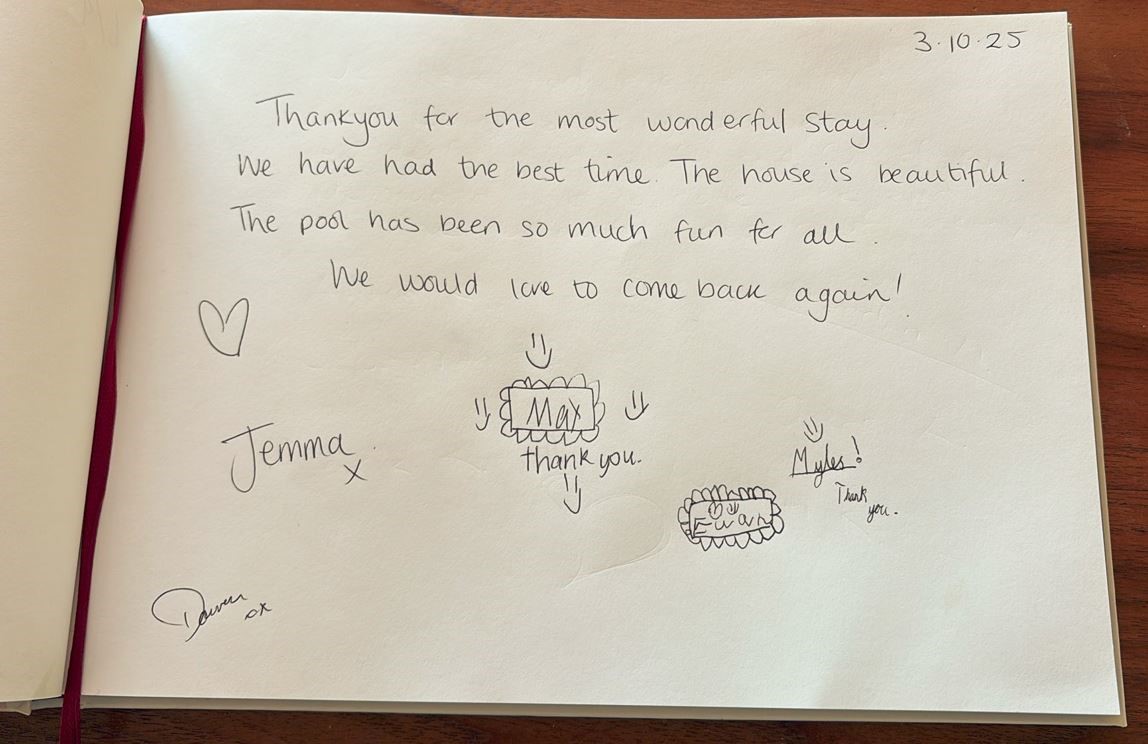 3.10.25
Thankyou for the most wonderful stay.
We have had the best time. The house is beautiful.
The pool has been so much fun for all.
We would love to come back again!
Jemma
x
Max
thank you.
Myles!
Thank
you.
Ewan
xx